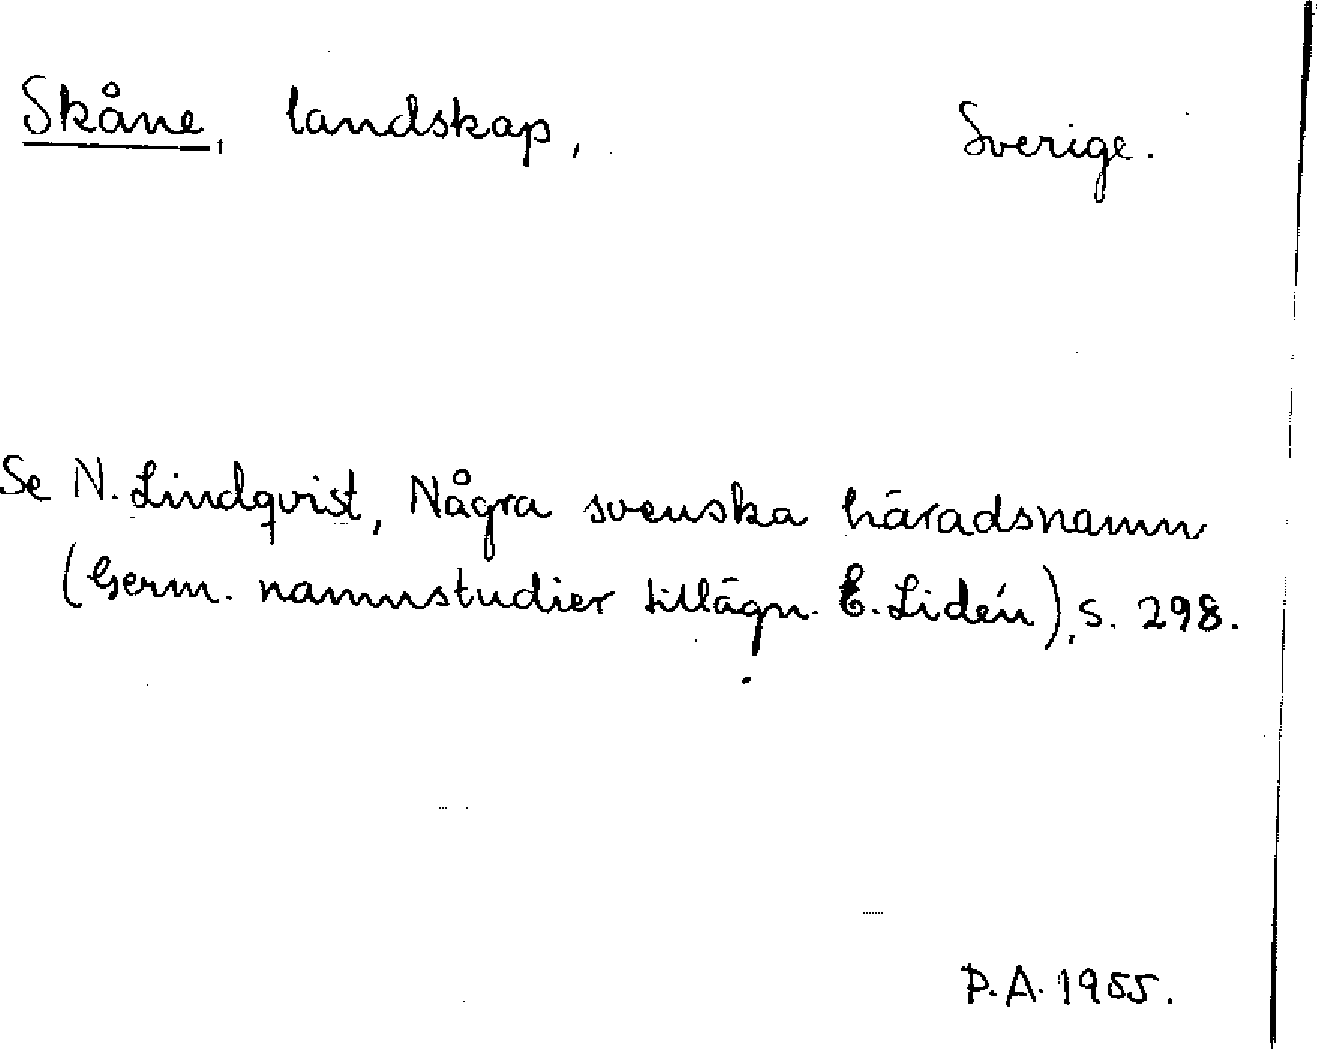 Skåne, landskap, Sverige.
Se N. Lindqvist, Några svenska häradsnamn
(Germ. namnstudier tillägn. E. Lidén), s. 298.
P.A. 1955.